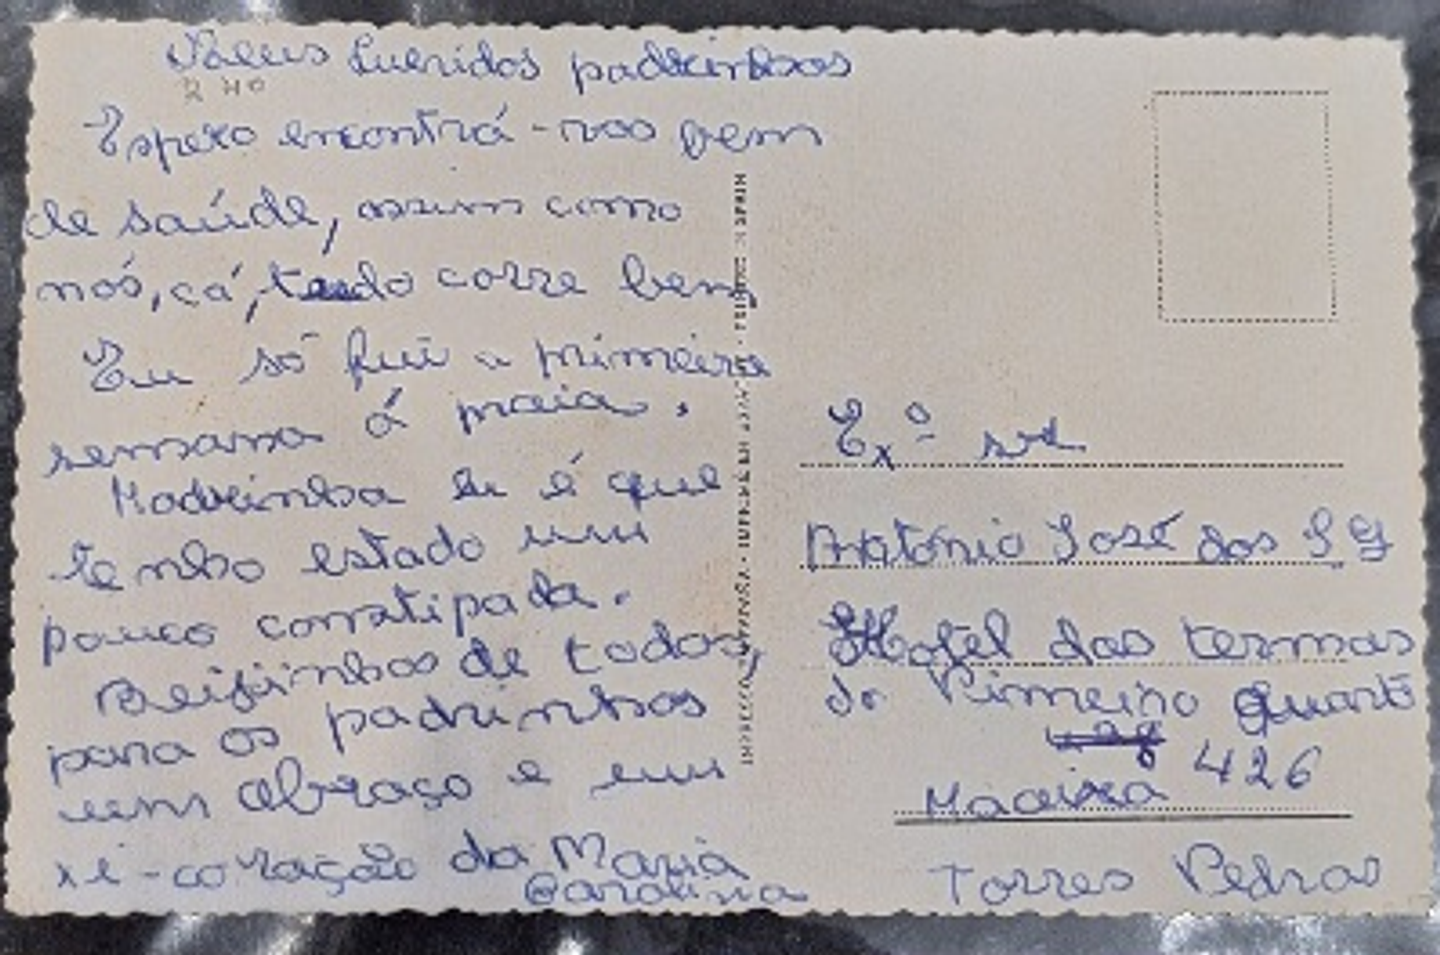 Queridos padrinhos
Espero encontrá-vos bem
de saúde, assim como
nós, cá, tudo corre bem,
Eu só fui a primeira
semana á praia.
Madrinha eu é que
tenho estado um
pouco constipada.
Beijinhos de todos,
para os padrinhos
um abraço e um
xi-coração da Maria
Carolina
Ex.º sr
António José dos
Hotel das termas
do Pimeiro quarto
426
Maceira
Torres Vedras